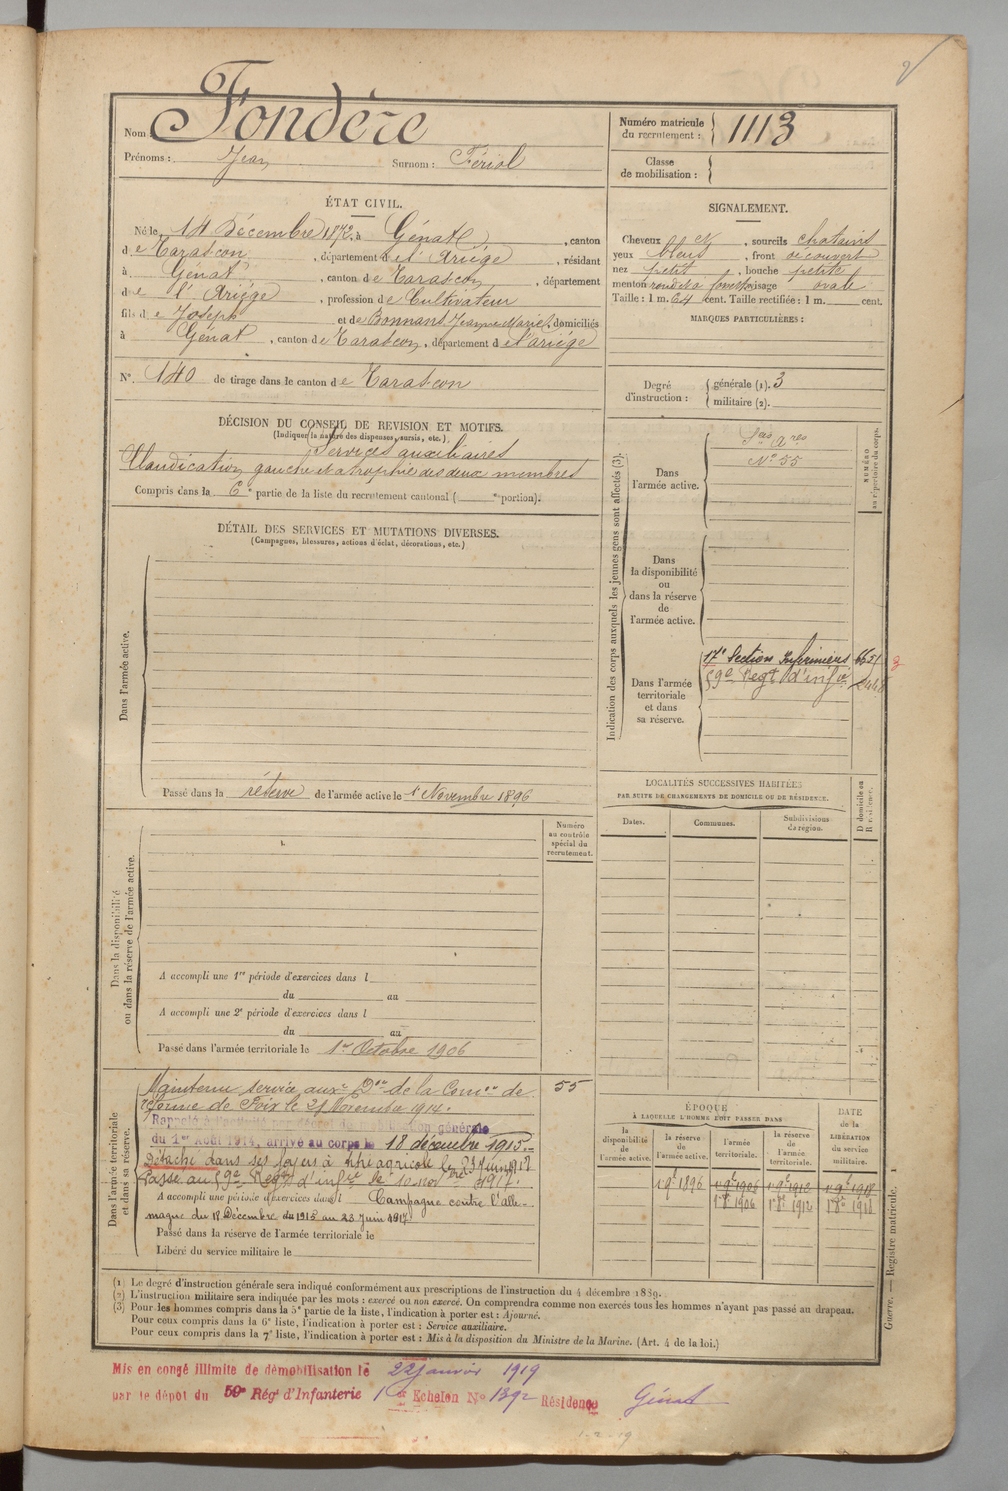 Nom Fondère
Prénoms : Jean Surnom : Fériol
Numéro matricule du recrutement : 1113
Classe de mobilisation :
ÉTAT CIVIL.
Né le 14 Décembre 1872, à Génat, canton
de Tarascon, département de l'Ariège, résidant
à Génat, canton de Tarascon, département
de l'Ariège, profession de Cultivateur
fils de Joseph et de Bonnans Jeanne Marie, domiciliés
à Génat, canton de Tarascon, département de l'ariège
N° 140 de tirage dans le canton de Tarascon
SIGNALEMENT.
Cheveux et, sourcils chatains
yeux bleus, front découvert
nez petit, bouche petite
menton rond à fossette visage ovale
Taille : 1 m. 64 cent. Taille rectifiée : 1 m. cent.
MARQUES PARTICULIÈRES :
Degré d'instruction : générale (1). 3
militaire (2).
DÉCISION DU CONSEIL DE REVISION ET MOTIFS.
(Indiquer la nature des dispenses, sursis, etc.)
Services auxiliaires
Claudication gauche et atrophie des deux membres
Compris dans la 6e partie de la liste du recrutement cantonal ( e portion).
DÉTAIL DES SERVICES ET MUTATIONS DIVERSES.
(Campagnes, blessures, actions d'éclat, décorations, etc.)
Dans l'armée active.
Passé dans la réserve de l'armée active le 1r Novembre 1896
Indication des corps auxquels les jeunes gens sont affectés (3).
NUMÉRO au répertoire du corps.
Dans l'armée active.
N° 55
Dans la disponibilité ou dans la réserve de l'armée active.
Dans l'armée territoriale et dans sa réserve.
17e Section Infirmiers
59e Régt d'infie
LOCALITÉS SUCCESSIVES HABITÉES
PAR SUITE DE CHANGEMENTS DE DOMICILE OU DE RÉSIDENCE.
Dates. Communes. Subdivisions de région.
D domicile ou R résidence.
Numéro au contrôle spécial du recrutement.
Dans la disponibilité ou dans la réserve de l'armée active.
A accompli une 1re période d'exercices dans l
du au
A accompli une 2e période d'exercices dans l
du au
Passé dans l'armée territoriale le 1er Octobre 1906
Dans l'armée territoriale et dans sa réserve.
Maintenu service auxre Don de la Comon de 55
réforme de Foix le 21 Novembre 1914.
Rappelé à l'activité par décret de mobilisation générale
du 1er Août 1914, arrivé au corps le 18 décembre 1915.
Détaché dans ses foyers à titre agricole le 23 Juin 1917
Passé au 59e Régt d'infie le 10 nov 1917.
A accompli une période d'exercices dans l Campagne contre l'alle-
magne du 18 Décembre du 1915 au 23 Juin 1917.
Passé dans la réserve de l'armée territoriale le
Libéré du service militaire le
ÉPOQUE
À LAQUELLE L'HOMME DOIT PASSER DANS
DATE de la LIBÉRATION du service militaire.
la disponibilité de l'armée active.
la réserve de l'armée active.
l'armée territoriale.
la réserve de l'armée territoriale.
1 9e 1896 1 9e 1906 1 9e 1912 1 9e 1918
1r 8e 1906 1r 8e 1912 1r 8e 1918
Guerre. — Registre matricule. 1
(1) Le degré d'instruction générale sera indiqué conformément aux prescriptions de l'instruction du 4 décembre 1889.
(2) L'instruction militaire sera indiquée par les mots : exercé ou non exercé. On comprendra comme non exercés tous les hommes n'ayant pas passé au drapeau.
(3) Pour les hommes compris dans la 5e partie de la liste, l'indication à porter est : Ajourné.
Pour ceux compris dans la 6e liste, l'indication à porter est : Service auxiliaire.
Pour ceux compris dans la 7e liste, l'indication à porter est : Mis à la disposition du Ministre de la Marine. (Art. 4 de la loi.)
Mis en congé illimité de démobilisation le 22 janvier 1919
par le dépôt du 59e Régt d'Infanterie 1er Echelon N° 1892 Résidence Génat
1-2-19